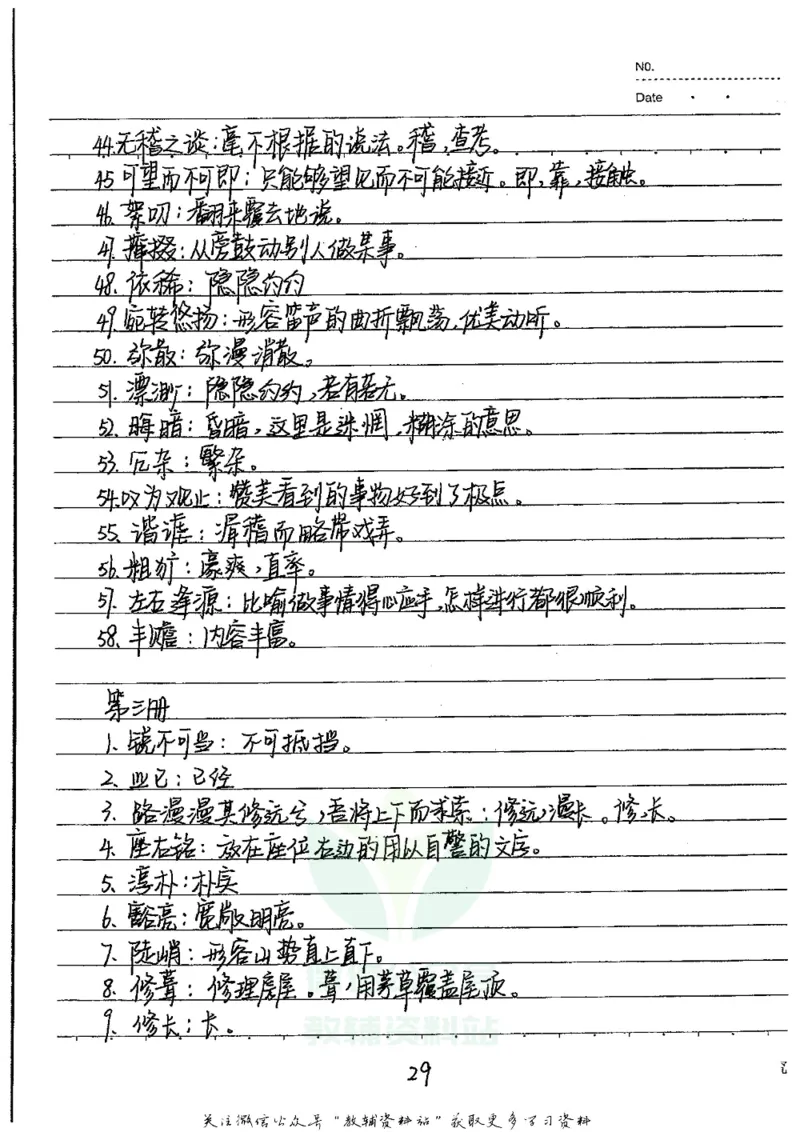 NO.
Date
44.无稽之谈:毫不根据的说法。稽,查考。
45.可望而不可即:只能够望见而不可能接近。即,靠,接触。
46.絮叨:翻来覆去地说。
47.撺掇:从旁鼓动别人做某事。
48.依稀:隐隐约约
49.宛转悠扬:形容笛声的曲折飘荡,优美动听。
50.弥散:弥漫消散。
51.漂渺:隐隐约约,若有若无。
52.晦暗:昏暗,这里是迷惘,糊涂的意思。
53.冗杂:繁杂。
54.叹为观止:赞美看到的事物好到了极点。
55.谐谑:滑稽而略带戏弄。
56.粗犷:豪爽,直率。
57.左右逢源:比喻做事情得心应手,怎样进行都很顺利。
58.丰赡:内容丰富。
第三册
1.锐不可当:不可抵挡。
2.业已:已经
3.路漫漫其修远兮,吾将上下而求索:修远,漫长。修,长。
4.座右铭:放在座位右边的用以自警的文房。
5.淳朴:朴实
6.豁亮:宽敞明亮。
7.陡峭:形容山势直上直下。
8.修葺:修理房屋。葺,用茅草覆盖屋顶。
9.修长:长。
教辅资料站
29
关注微信公众号"教辅资料站"获取更多学习资料